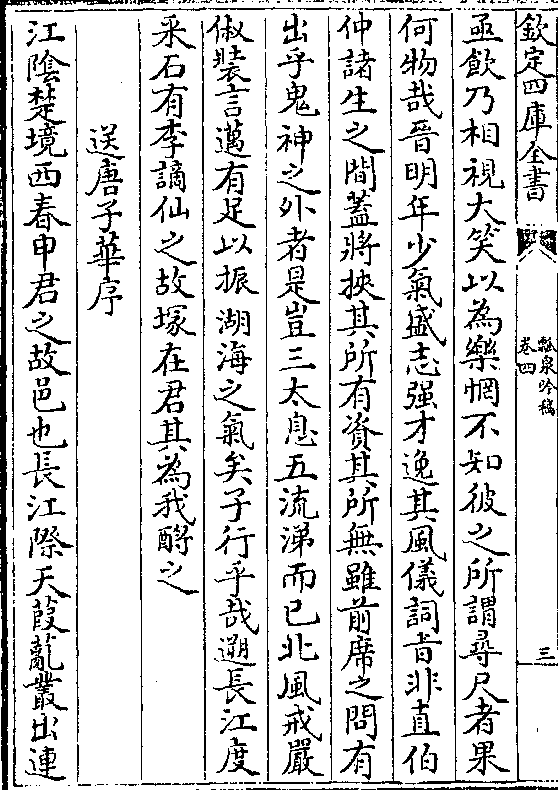 欽定四庫全書
瓢泉吟稿
卷四
三
亟飲乃相視大笑以為樂惘不知彼之所謂尋尺者果
何物哉晉明年少氣盛志强才逸其風儀詞旨非直伯
仲諸生之間蓋將挾其所有資其所無雖前席之問有
出乎鬼神之外者是豈三太息五流涕而已北風戒嚴
俶裝言邁有足以振湖海之氣矣子行乎哉遡長江度
采石有李謫仙之故塚在君其為我酹之
送唐子華序
江陰楚境西春申君之故邑也長江際天葭薍叢出連